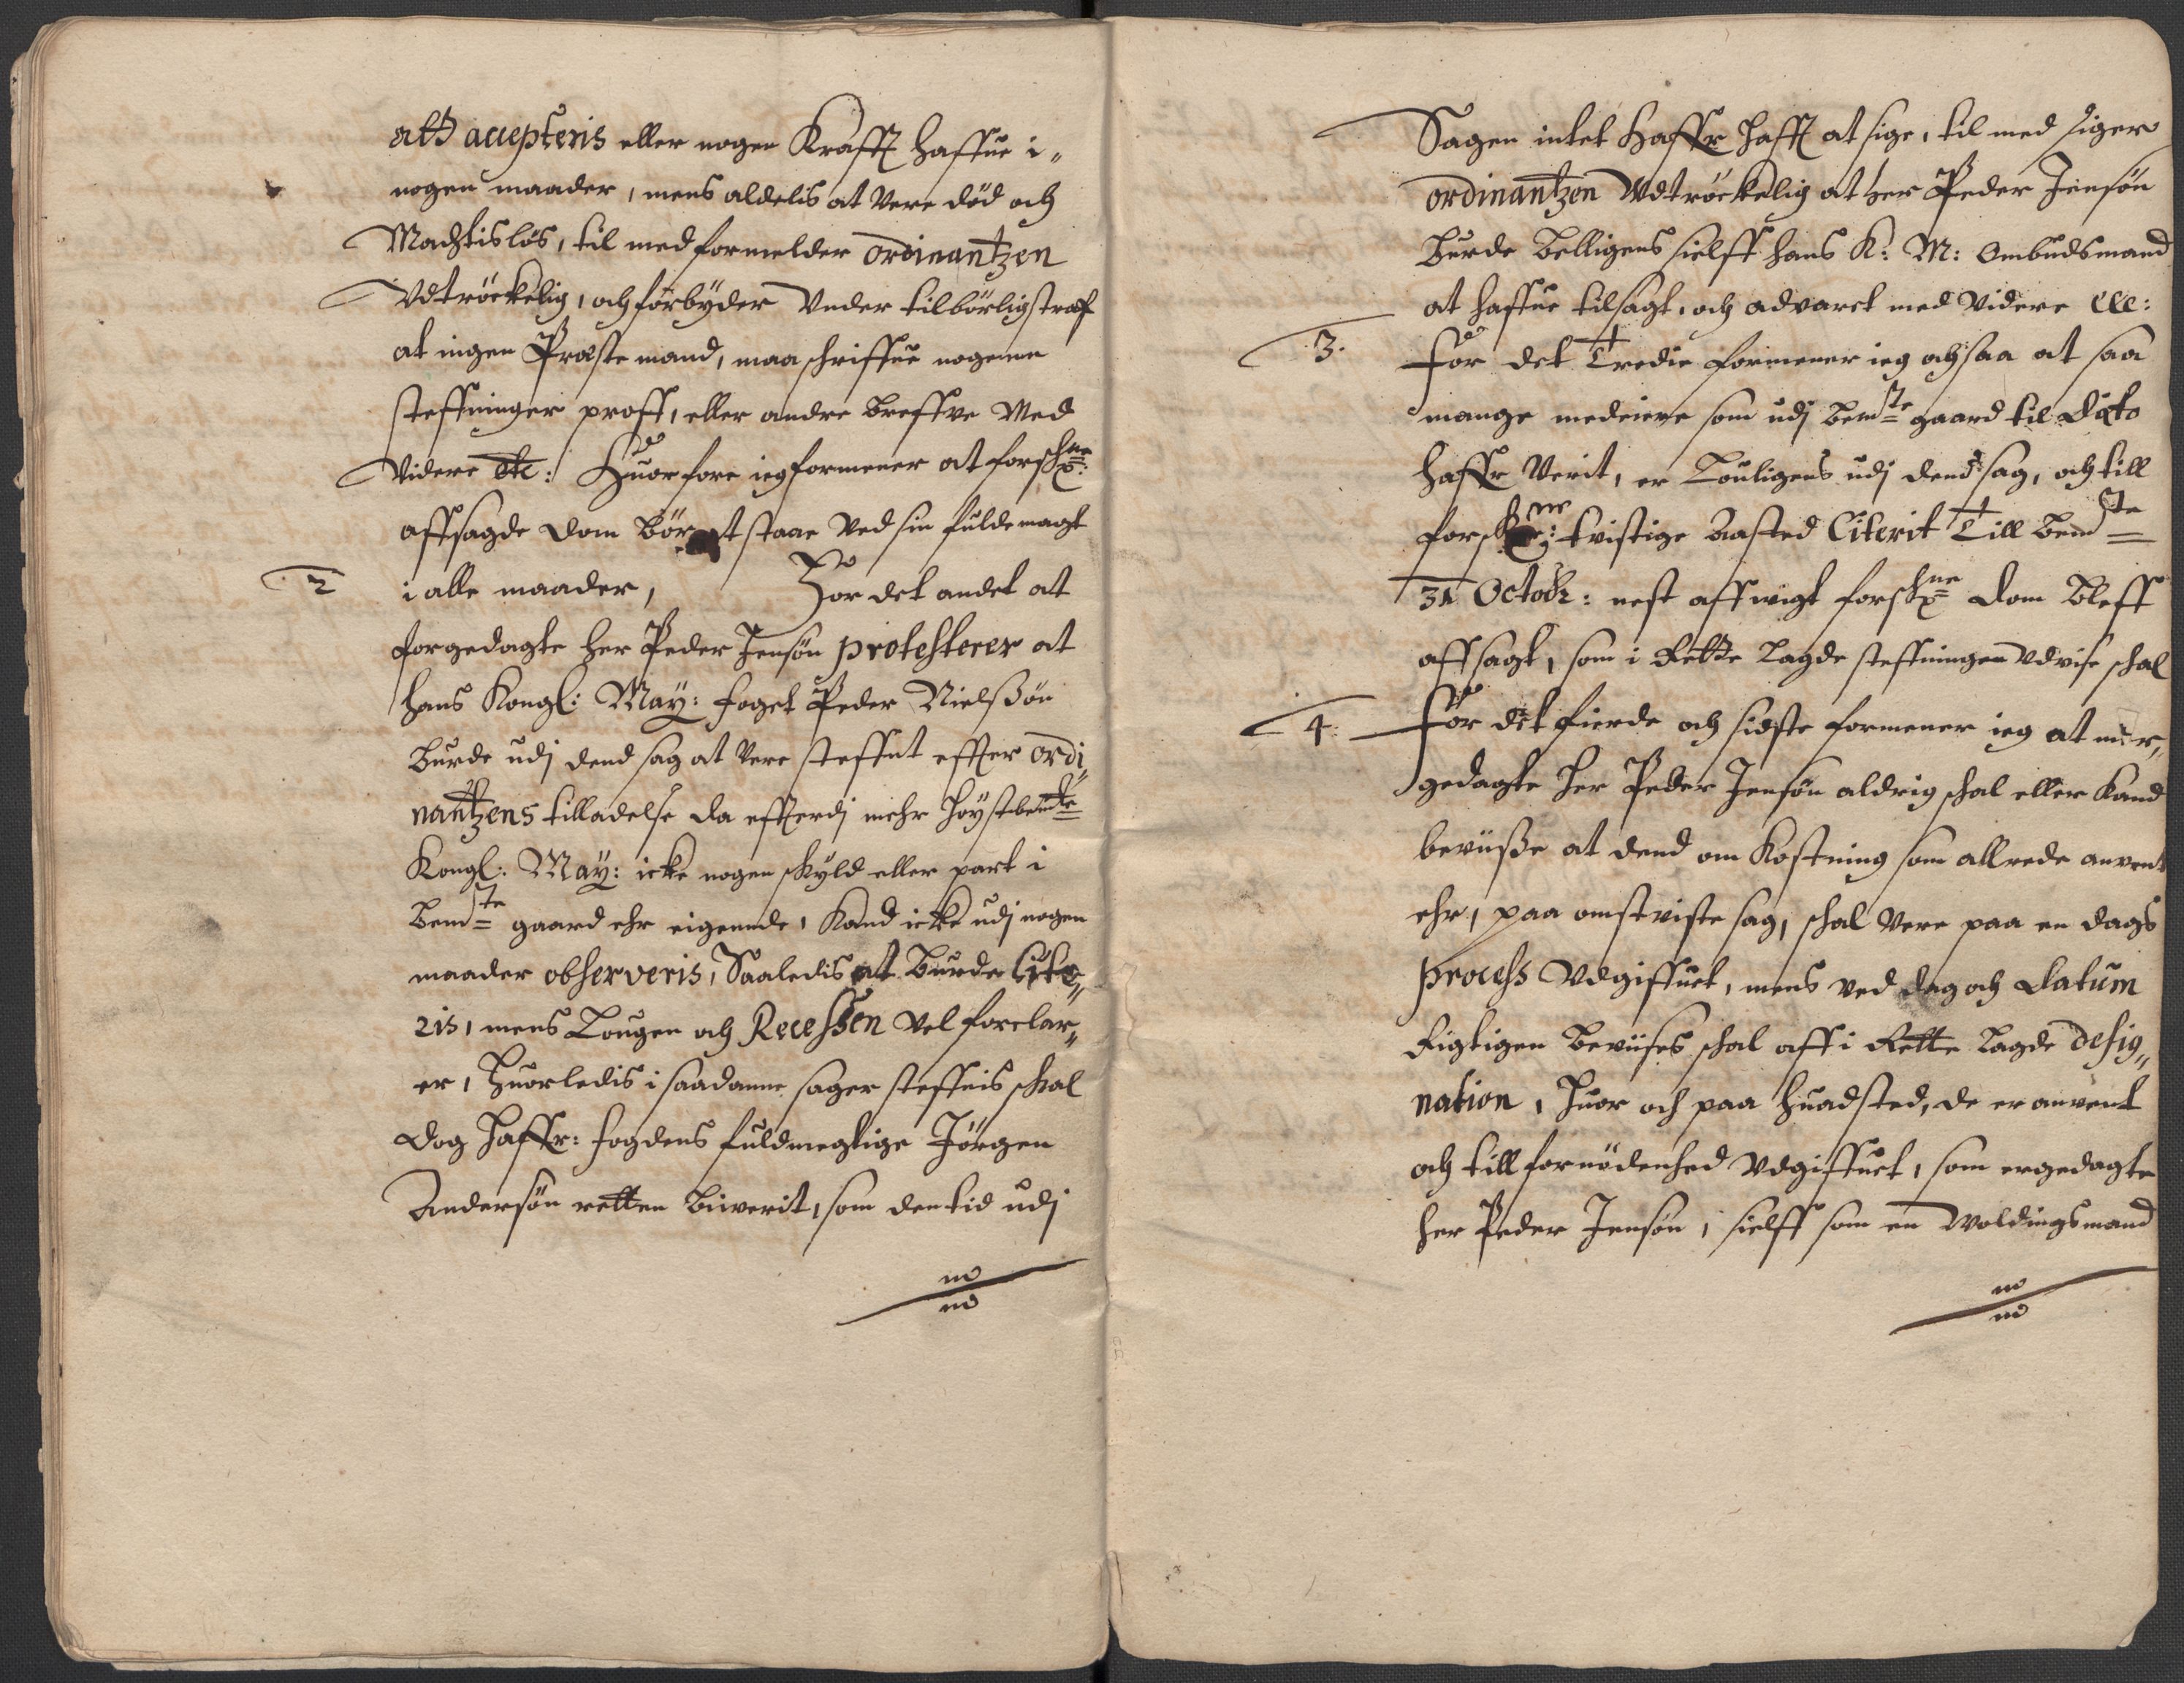 att accepteris eller nogen Krafft haffue i„
nogen maader, mens aldelis at Vere død och
Machtisløs, til med formelder ordinantzen
Vdtrøckelig, och forbÿder Vnder tilbørlig straf
at ingen Præstemand, maa schriffue nogenne
steffninger proff, eller andre breffve Med
Videre etc: Huorfore ieg formener at forschne:
affsagde dom bør at staae Ved sin fuldemagt
2 i alle maader, For det andet at
forgedagte her Peder Jensøn protesterer at
hans Kongl: Maÿ: foget Peder Nielsßøn
burde udj dend sag at Vere steffnt effter ordi„
nantzens tilladelse da effterdj mehr høÿstbemte
Kongl: Maÿ: icke nogen skÿld eller part i
bemte gaard ehr eigende, Kand icke udj nogen
maader observeris, Saaledis at burde Cite„
ris, mens Lougen och Recessen Vel forclar„
er, huorledis i saadanne sager steffnis schal
dog haffr: fogdens fuldmegtige Jørgen
Andersøn retten biwerit, som den tid udj
Sagen intet haffr hafft at sige, til med siger
ordinantzen Vdtrøckelig at her Peder Jensøn
burde belligens sielff hans K: M: Ombudsmand
at haffue tilsagt, och advaret med Videre etc:
3. For det Tredie formener ieg och saa at saa
mange medeiere som udj bemte gaard til dato
haffr Verit, er Louligens udj dend sag, och till
forschne: tvistige aasted Citerit Till bemte
31 Octobr: nest affvigt forschne dom bleff
affsagt, som i Rette lagde steffningen Vdvise schal
4. For det fierde och sidste formener ieg at mer„
gedagte her Peder Jensøn aldrig schal eller Kand
beviisse at dend om Kostning som allrede anvent
ehr, paa omtviste sag, schal Vere paa en dags
process Vdgiffuet, mens ved dag och datum
Rigtigen beviises schal aff i Rette lagde desig„
nation, huor och paa huad sted, de er anvent
och till fornødenhed Vdgiffuet, som ergedagte
her Peder Jensøn, sielff som en Woldingsmand